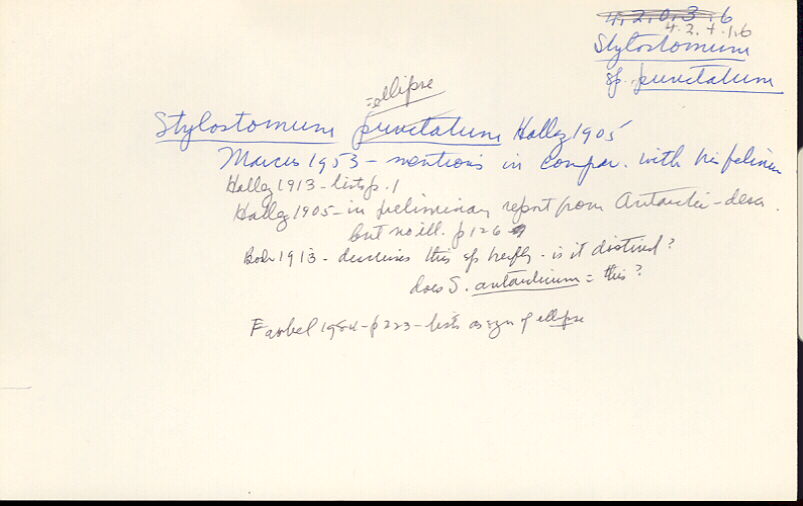 4.2.0.3.6
4.2.+.1.6
Stylostomum
sp. punctatum
= ellipse
Stylostomum punctatum Hallez 1905
Marcus 1953 - mentions in compar. with his felinum
Hallez 1913 - lists p. 1
Hallez 1905 - in preliminary report from Antarctic - descr.
but no ill. p 126
Bock 1913 - discusses this sp briefly - is it distinct?
does S. antarcticum = this?
Faubel 1984 - p 223 - lists as syn of ellipse